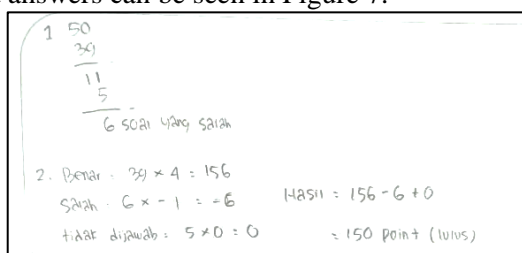 answers can be seen in Figure 7.
1 50
39
11
5 -
6 soal yang salah
2. Benar : 39 x 4 : 156
Salah : 6 x - 1 : -6
tidak dijawab : 5 x 0 : 0
Hasil : 156 - 6 + 0
: 150 point (lulus)